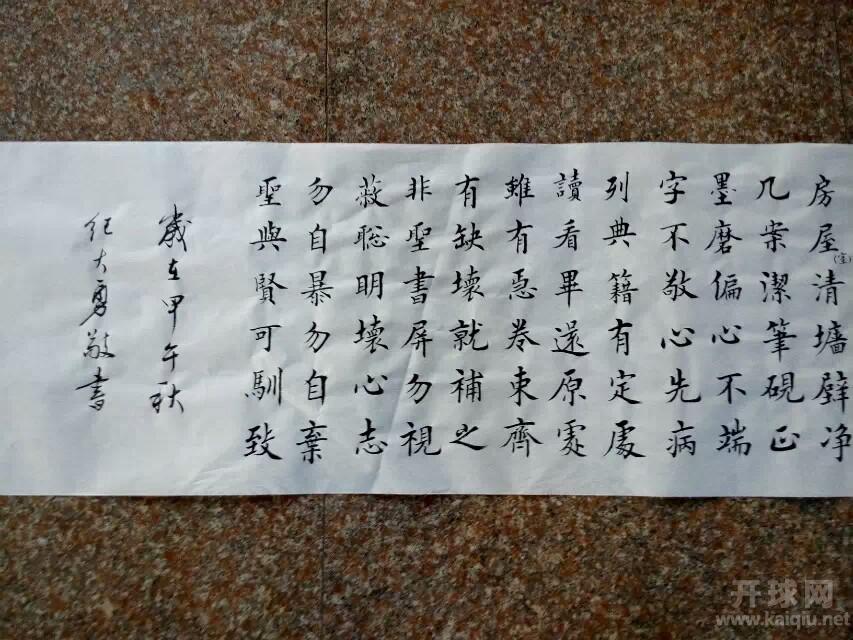 房屋清墻壁净
(室)
几案潔筆硯正
墨磨偏心不端
字不敬心先病
列典籍有定處
讀看畢還原處
雖有急卷束齊
有缺壞就補之
非聖書屏勿視
蔽聡明壞心志
勿自暴勿自棄
聖與賢可馴致
歲在甲午秋
纪大勇敬書
开球网
www.kaiqiu.net